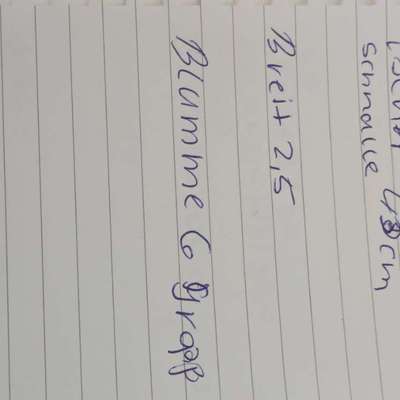 schnalle 48 cm
Breit 2,5
Blumme 6 gropp